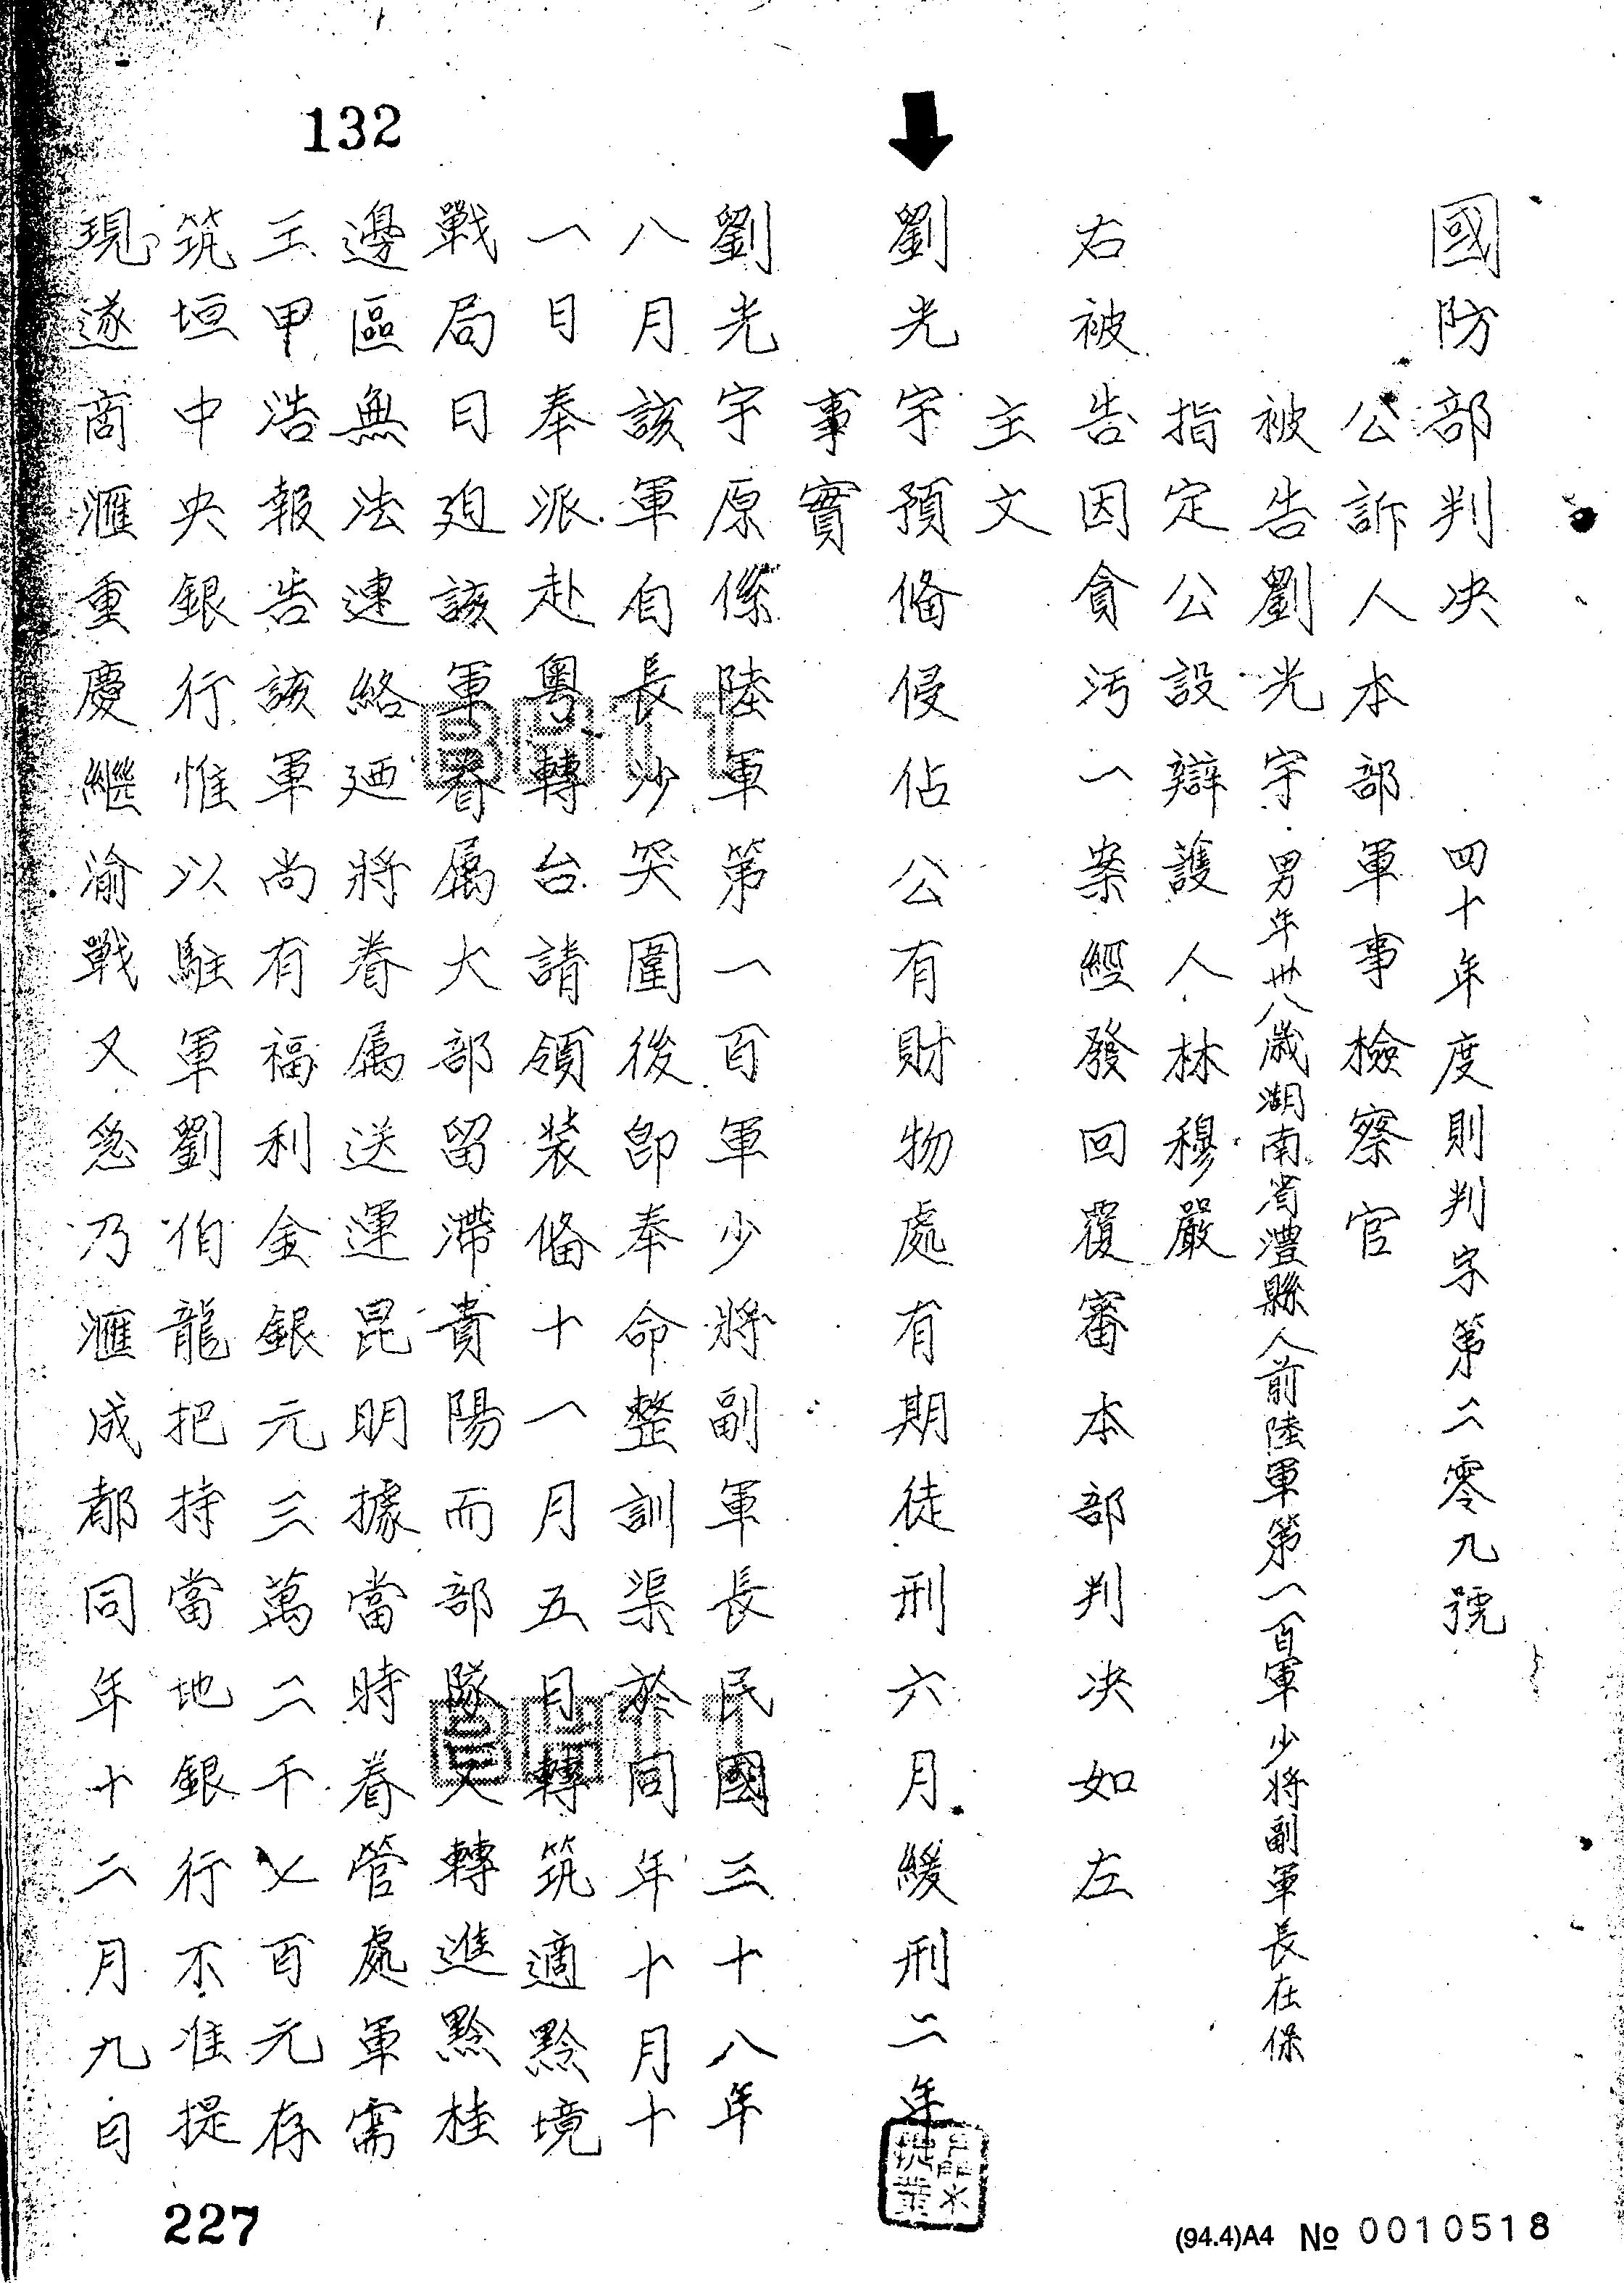 132
國防部判决　四十年度則判字第二零九號
公訴人本部軍事檢察官
被告劉光宇男年卅八歲湖南省澧縣人前陸軍第一百軍少將副軍長在保
指定公設辯護人林穆嚴
右被告因貪污一案經發回覆審本部判决如左
主文
劉光宇預俻侵佔公有財物處有期徒刑六月緩刑二年
事實
劉光宇原係陸軍第一百軍少將副軍長民國三十八年
八月該軍自長沙突圍後卽奉命整訓渠於同年十月十
一日奉派赴粵轉台請領装俻十一月五日轉筑適黔境
戰局日廹該軍眷属大部留滯貴陽而部隊又轉進黔桂
邊區無法連絡廼將眷属送運昆明據當時眷管處軍需
王甲浩報告該軍尚有福利金銀元三萬二千乂百元存
筑垣中央銀行惟以駐軍劉伯龍把持當地銀行不准提
現遂商滙重慶繼渝戰又急乃滙成都同年十二月九日
227
(94.4)A4 № 0010518
BHTT
BHTT